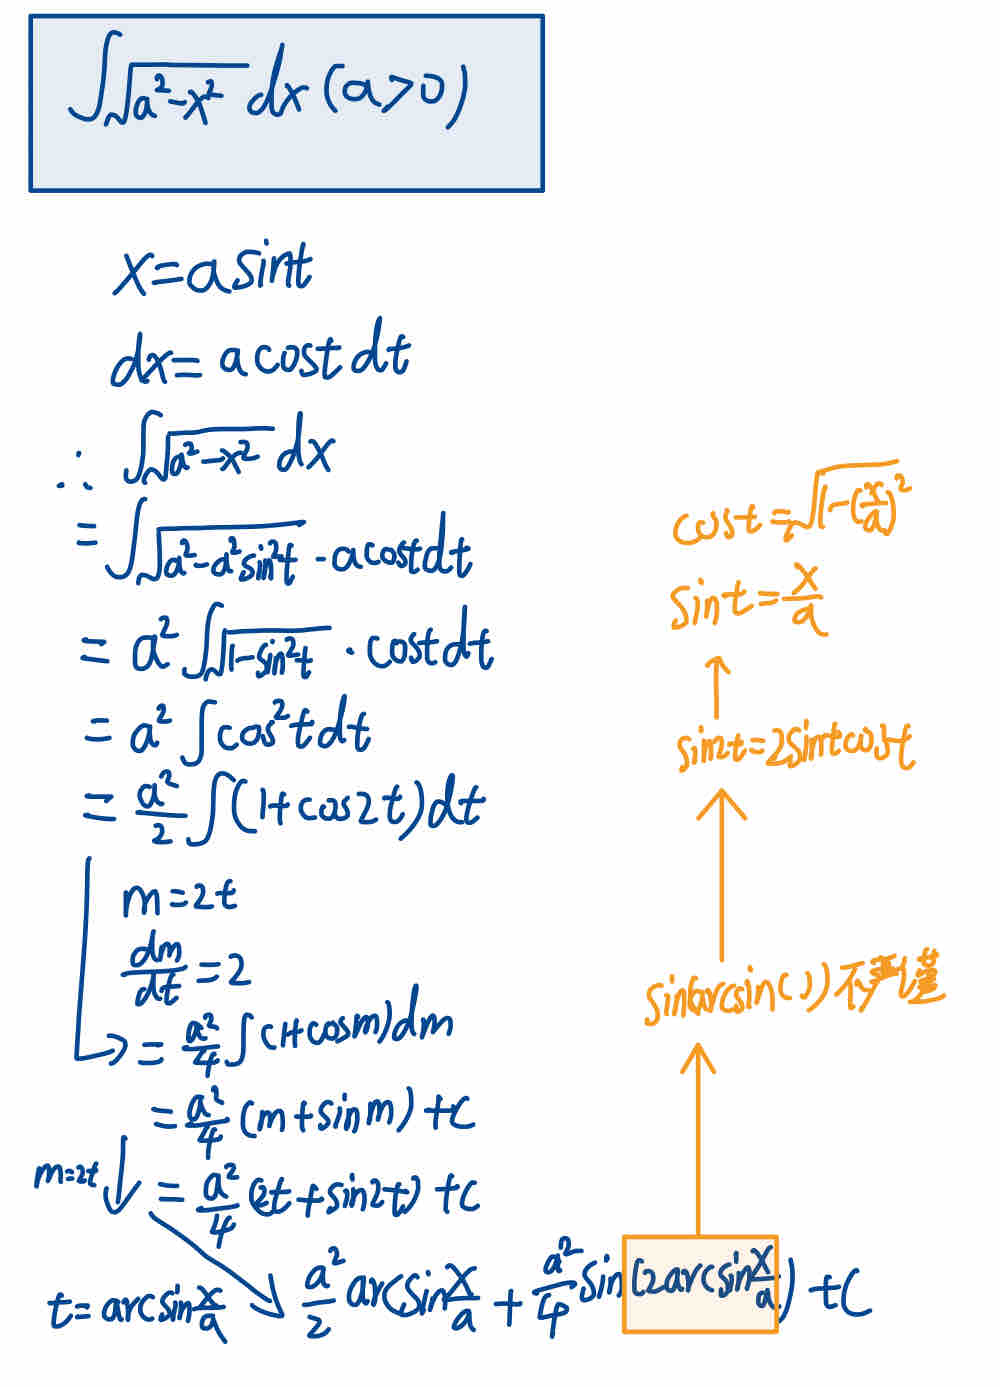 ∫√(a²-x²) dx (a>0)
x=a sint
dx= a cost dt
∴ ∫√(a²-x²) dx
= ∫√(a²-a²sin²t) · a cost dt
= a² ∫√(1-sin²t) · cost dt
= a² ∫cos²t dt
= a²/2 ∫(1+cos2t)dt
m=2t
dm/dt=2
= a²/4 ∫(1+cosm)dm
= a²/4 (m+sinm)+C
m=2t
= a²/4 (2t+sin2t)+C
t=arcsin x/a
a²/2 arcsin x/a + a²/4 sin(2arcsin x/a)+C
cost=√(1-(x/a)²)
sint=x/a
sin2t=2sintcost
sin(arcsin( )) 不严谨